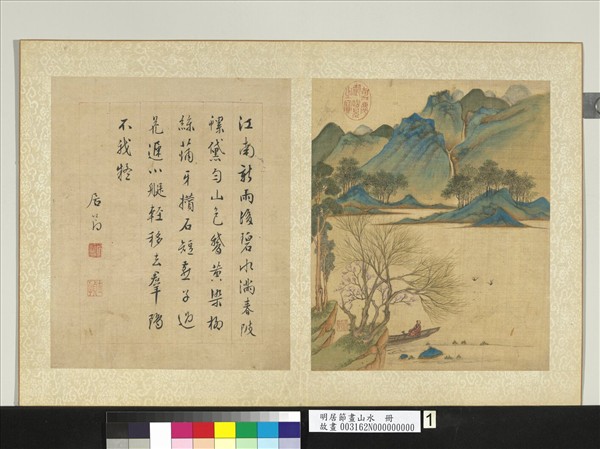 江南新雨後碧水滿春陂
螺黛勻山色鵞黃染柳
絲蒲牙攢石短燕子迎
花遲小艇輕移去羣鷗
不我疑
居節
明居節畫山水 冊
故畫 003162N000000000
1